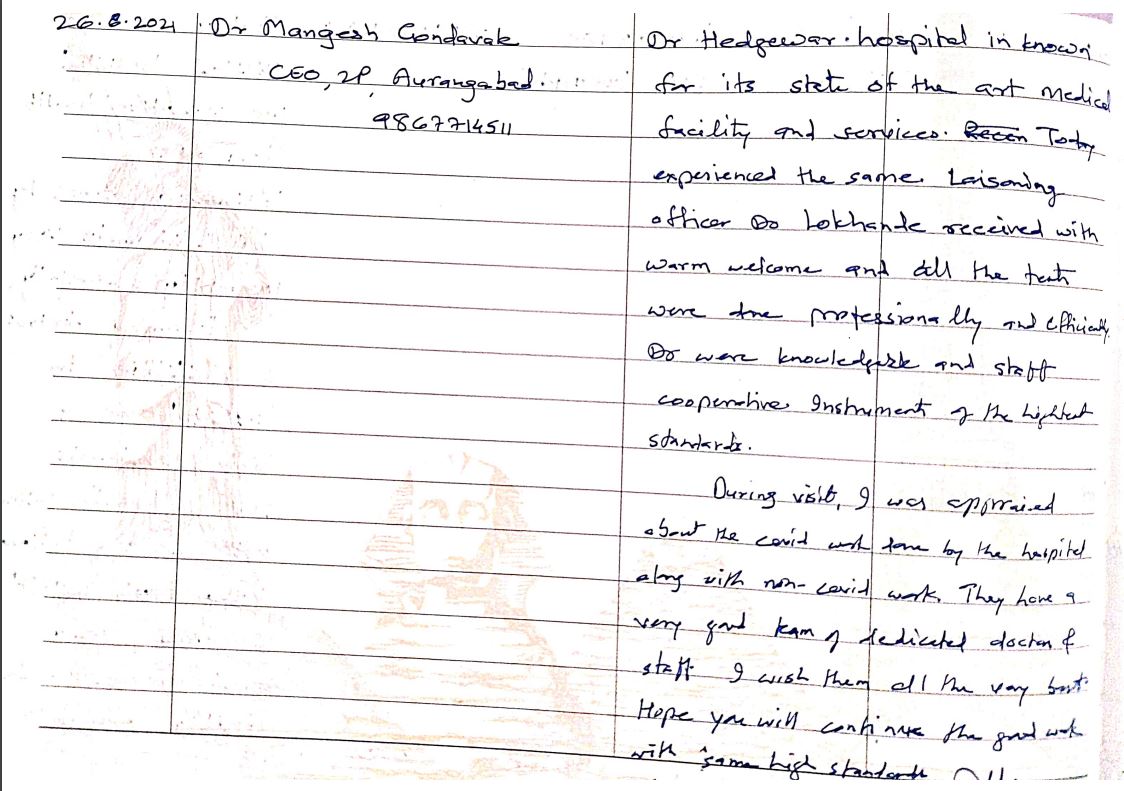 26.8.2021 Dr Mangesh Gondavale
CEO, ZP, Aurangabad.
9867714511
Dr Hedgewar hospital in known
for its state of the art medical
facility and services. Today
experienced the same. Laisoning
officer Dr Lokhande received with
warm welcome and all the tests
were done professionally and efficiently.
Dr were knowledgeable and staff
cooperative. Instruments of the highest
standards.
During visit, I was appraised
about the covid work done by the hospital
along with non-covid work. They have a
very good team of dedicated doctors &
staff I wish them all the very best.
Hope you will continue the good work
with same high standards